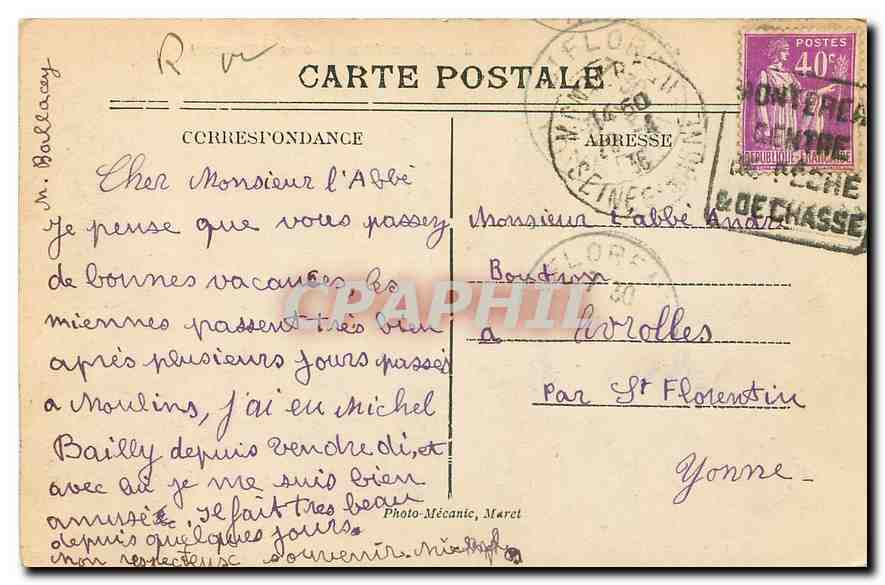 R
CARTE POSTALE
CORRESPONDANCE
ADRESSE
POSTES
40c
REPUBLIQUE FRANCAISE
MONTEREAU
SEINE-&-MARNE
14 50
36
MONTEREA
CENTRE
DE PECHE
& DE CHASSE
M. Ballacey
Cher Monsieur l'Abbé
je pense que vous passez
de bonnes vacances, les
miennes passent très bien
après plusieurs jours passés
a Moulins, j'ai eu Michel
Bailly depuis vendredi, et
avec lui je me suis bien
amusé. il fait très beau
depuis quelques jours.
Mon respectueux souvenir.
Monsieur l'abbé André
Boutron
à Avrolles
Par St Florentin
Yonne
FLOREN
30
CPAPHIL
Photo-Mécanic, Maret